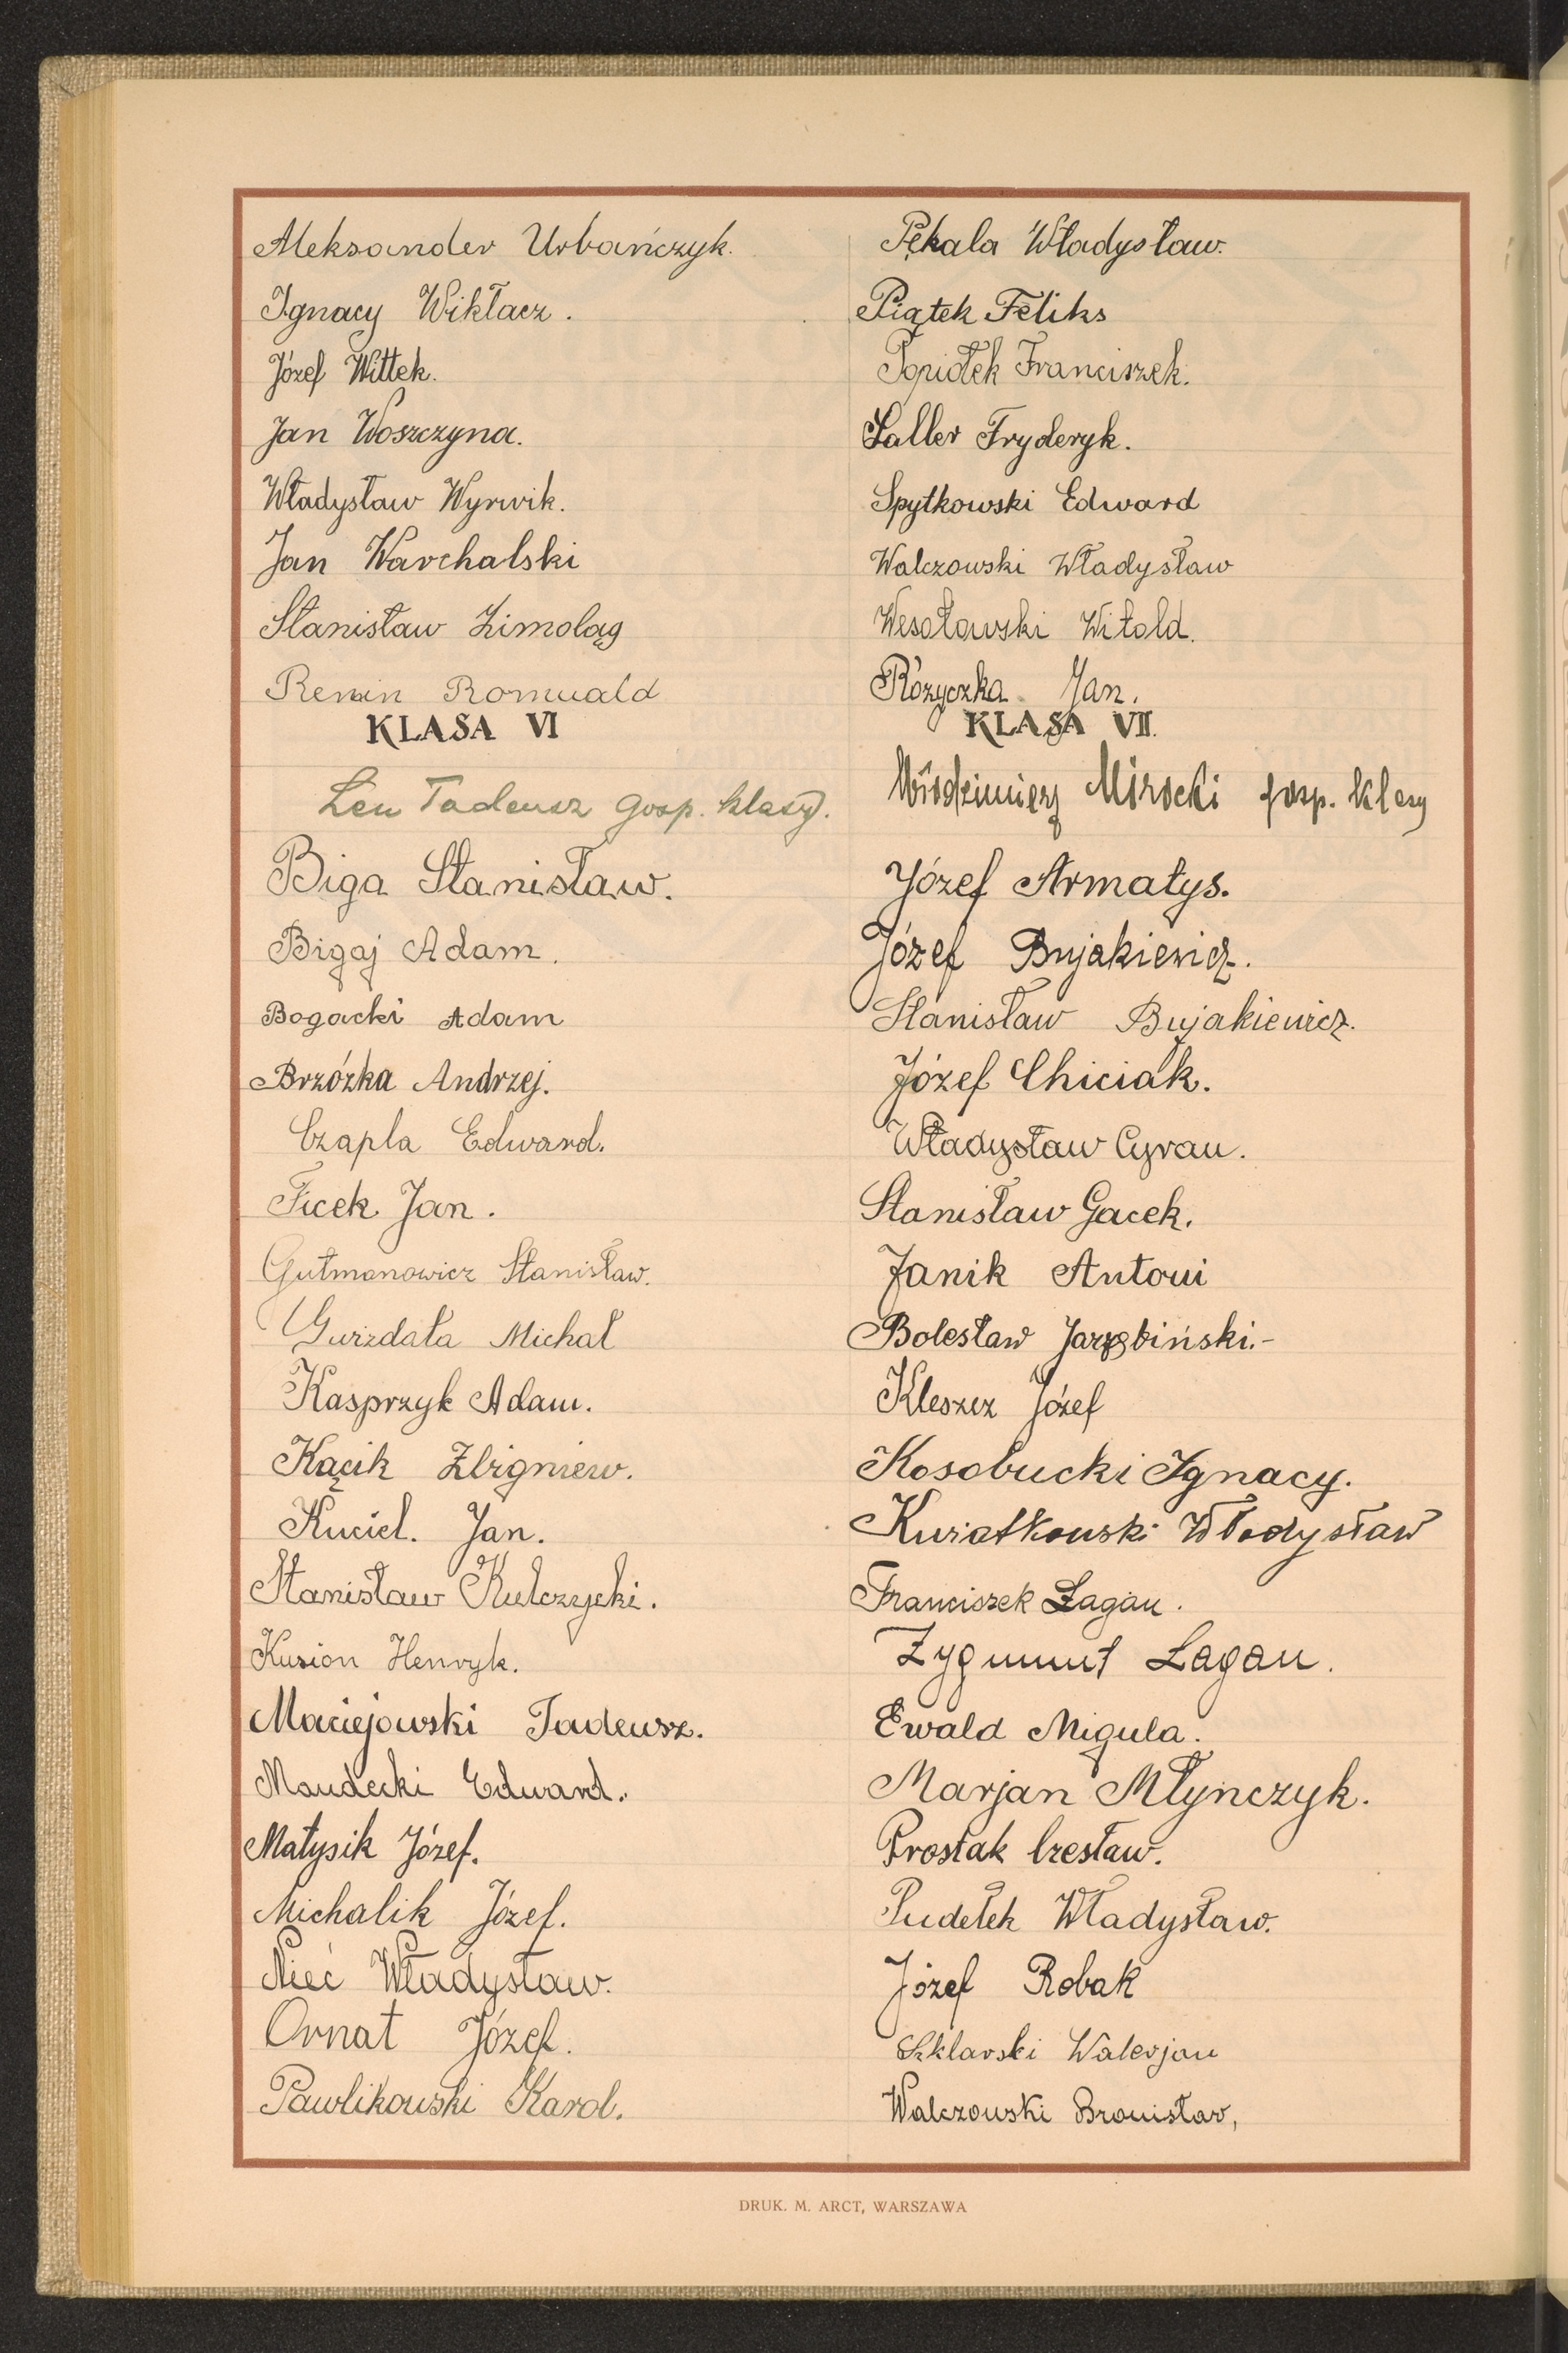 Aleksander Urbańczyk.
Ignacy Wikłacz.
Józef Wittek.
Jan Woszczyna.
Władysław Wyrwik.
Jan Warchalski
Stanisław Zimoląg
Remin Romuald
KLASA VI
Leu Tadeusz gosp. klasy.
Biga Stanisław.
Bigaj Adam.
Bogacki Adam
Brzózka Andrzej.
Czapla Edward.
Ficek Jan.
Gutmanowicz Stanisław.
Gwizdała Michał
Kasprzyk Adam.
Kącik Zbigniew.
Kuciel. Jan.
Stanisław Kulczycki.
Kusion Henryk.
Maciejowski Tadeusz.
Maudecki Edward.
Matysik Józef.
Michalik Józef.
Nieć Władysław.
Ornat Józef.
Pawlikowski Karol.
Pękala Władysław.
Piątek Feliks
Popiołek Franciszek.
Saller Fryderyk.
Spytkowski Edward
Walczowski Władysław
Wesołowski Witold.
Różyczka Jan.
KLASA VII.
Włodzimierz Mirocki gosp. klasy
Józef Armatys.
Józef Bujakiewicz.
Stanisław Bujakiewicz.
Józef Chiciak.
Władysław Cyran.
Stanisław Gacek.
Janik Antoni
Bolesław Jarzębiński.-
Kleszcz Józef
Kosobucki Ignacy.
Kwiatkowski Władysław
Franciszek Łagan.
Zygmunt Łagan.
Ewald Migula.
Marjan Młyńczyk.
Prostak Czesław.
Pudełek Władysław.
Józef Robak
Szklarski Walerjan
Walczowski Bronisław,
DRUK. M. ARCT, WARSZAWA